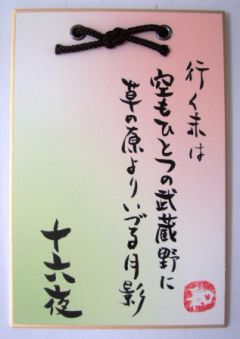 行く末は
空もひとつの武蔵野に
草の原よりいづる月影
十六夜
和